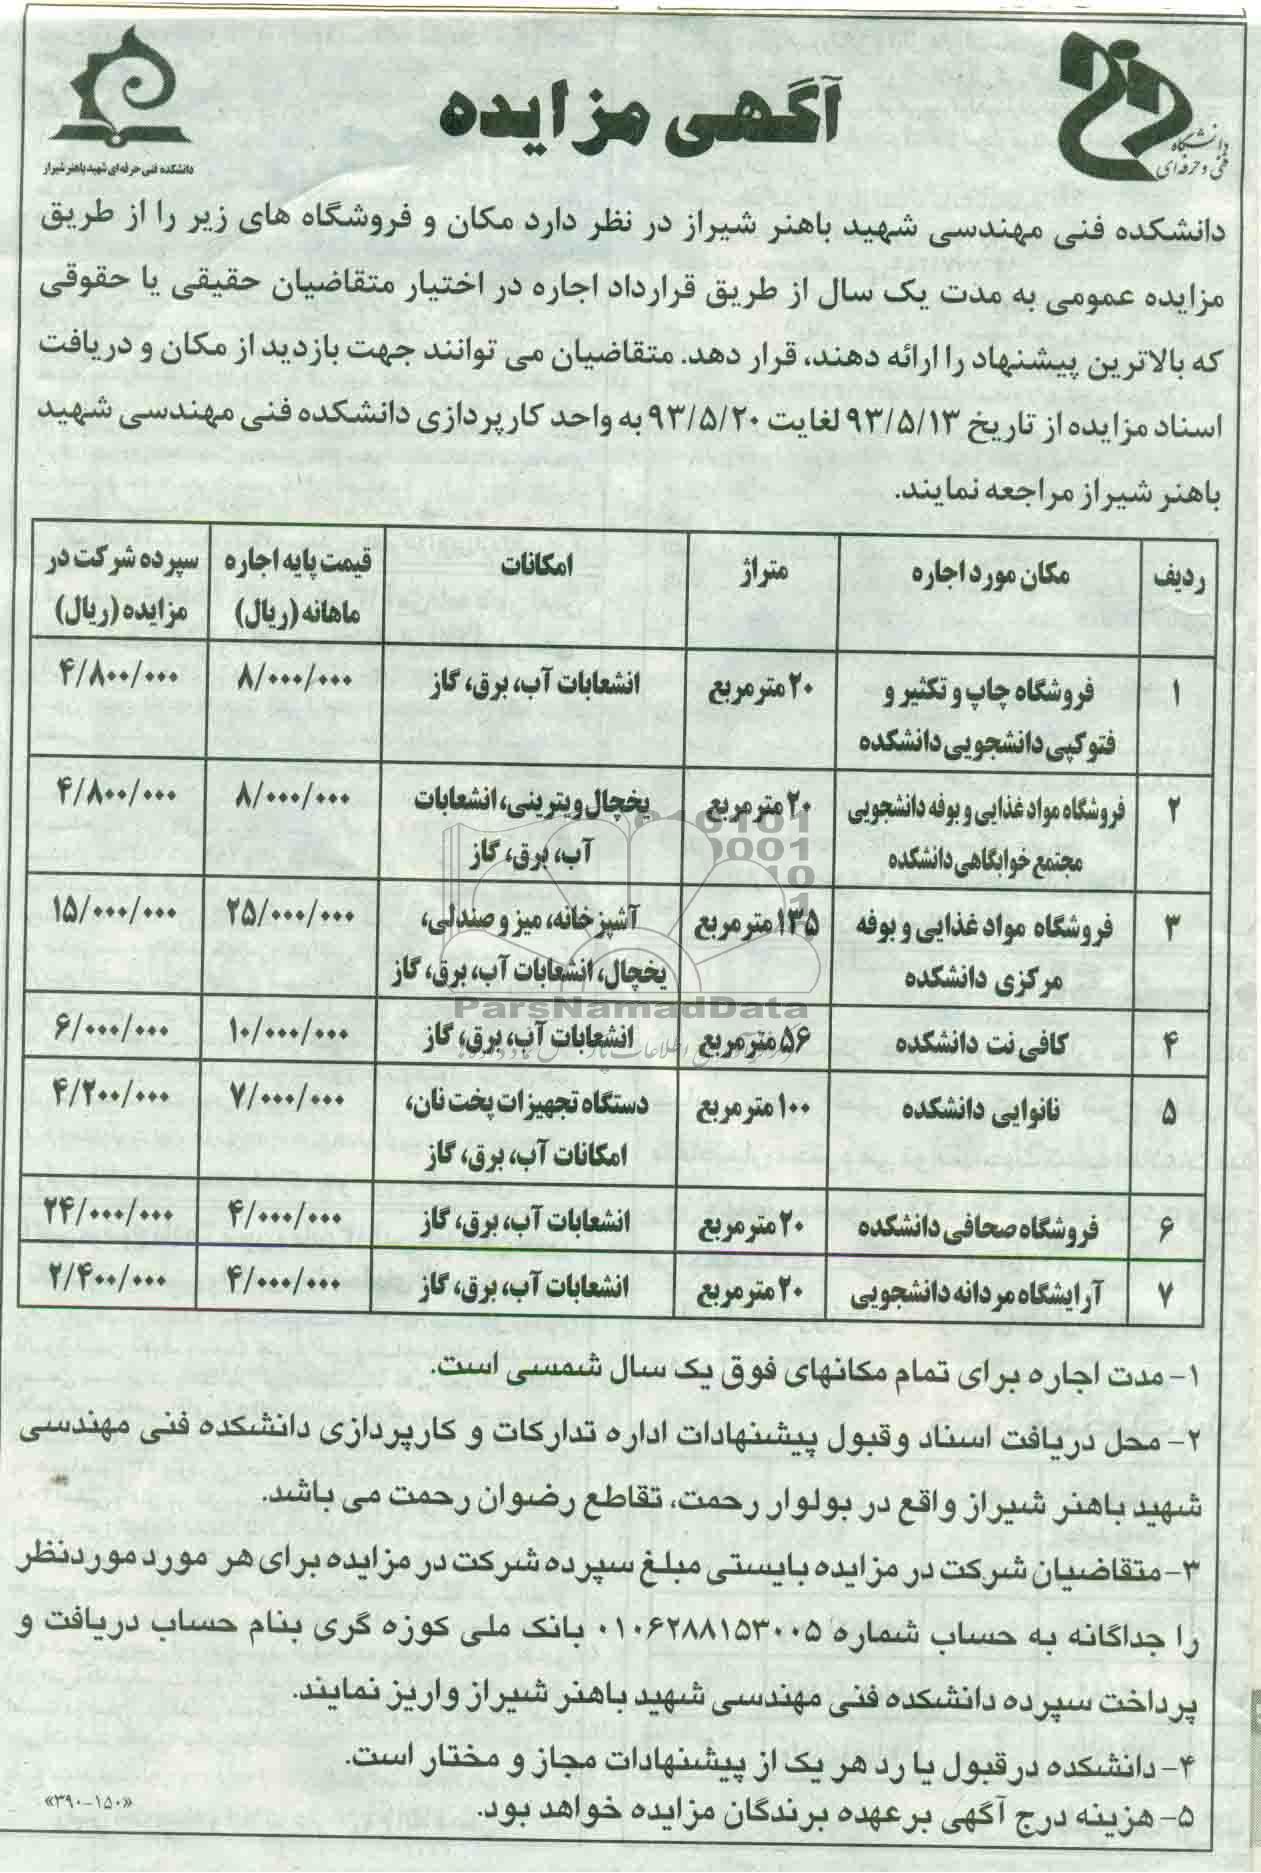 دانشگاه
فنی و حرفه‌ای
آگهی مزایده
دانشکده فنی حرفه‌ای شهید باهنر شیراز
دانشکده فنی مهندسی شهید باهنر شیراز در نظر دارد مکان و فروشگاه های زیر را از طریق
مزایده عمومی به مدت یک سال از طریق قرارداد اجاره در اختیار متقاضیان حقیقی یا حقوقی
که بالاترین پیشنهاد را ارائه دهند، قرار دهد. متقاضیان می توانند جهت بازدید از مکان و دریافت
اسناد مزایده از تاریخ ۹۳/۵/۱۳ لغایت ۹۳/۵/۲۰ به واحد کارپردازی دانشکده فنی مهندسی شهید
باهنر شیراز مراجعه نمایند.
ردیف | مکان مورد اجاره | متراژ | امکانات | قیمت پایه اجاره ماهانه (ریال) | سپرده شرکت در مزایده (ریال)
۱ | فروشگاه چاپ و تکثیر و فتوکپی دانشجویی دانشکده | ۲۰ مترمربع | انشعابات آب، برق، گاز | ۸/۰۰۰/۰۰۰ | ۴/۸۰۰/۰۰۰
۲ | فروشگاه مواد غذایی و بوفه دانشجویی مجتمع خوابگاهی دانشکده | ۲۰ مترمربع | یخچال ویترینی، انشعابات آب، برق، گاز | ۸/۰۰۰/۰۰۰ | ۴/۸۰۰/۰۰۰
۳ | فروشگاه مواد غذایی و بوفه مرکزی دانشکده | ۱۳۵ مترمربع | آشپزخانه، میز و صندلی، یخچال، انشعابات آب، برق، گاز | ۲۵/۰۰۰/۰۰۰ | ۱۵/۰۰۰/۰۰۰
۴ | کافی نت دانشکده | ۵۶ مترمربع | انشعابات آب، برق، گاز | ۱۰/۰۰۰/۰۰۰ | ۶/۰۰۰/۰۰۰
۵ | نانوایی دانشکده | ۱۰۰ مترمربع | دستگاه تجهیزات پخت نان، امکانات آب، برق، گاز | ۷/۰۰۰/۰۰۰ | ۴/۲۰۰/۰۰۰
۶ | فروشگاه صحافی دانشکده | ۲۰ مترمربع | انشعابات آب، برق، گاز | ۴/۰۰۰/۰۰۰ | ۲۴/۰۰۰/۰۰۰
۷ | آرایشگاه مردانه دانشجویی | ۲۰ مترمربع | انشعابات آب، برق، گاز | ۴/۰۰۰/۰۰۰ | ۲/۴۰۰/۰۰۰
ParsNamadData
۱- مدت اجاره برای تمام مکانهای فوق یک سال شمسی است.
۲- محل دریافت اسناد و قبول پیشنهادات اداره تدارکات و کارپردازی دانشکده فنی مهندسی
شهید باهنر شیراز واقع در بولوار رحمت، تقاطع رضوان رحمت می باشد.
۳- متقاضیان شرکت در مزایده بایستی مبلغ سپرده شرکت در مزایده برای هر مورد موردنظر
را جداگانه به حساب شماره ۰۱۰۶۲۸۸۱۵۳۰۰۵ بانک ملی کوزه گری بنام حساب دریافت و
پرداخت سپرده دانشکده فنی مهندسی شهید باهنر شیراز واریز نمایند.
۴- دانشکده در قبول یا رد هر یک از پیشنهادات مجاز و مختار است.
۵- هزینه درج آگهی بر عهده برندگان مزایده خواهد بود.
«۳۹۰-۱۵۰»